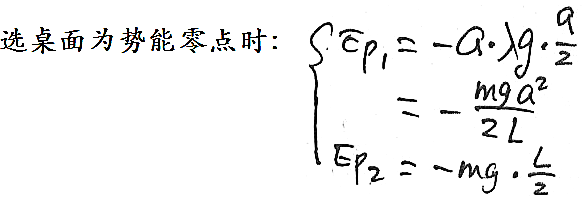 选桌面为势能零点时: { Ep₁ = -a·λg·a/2
= - mga²/2L
Ep₂ = -mg·L/2